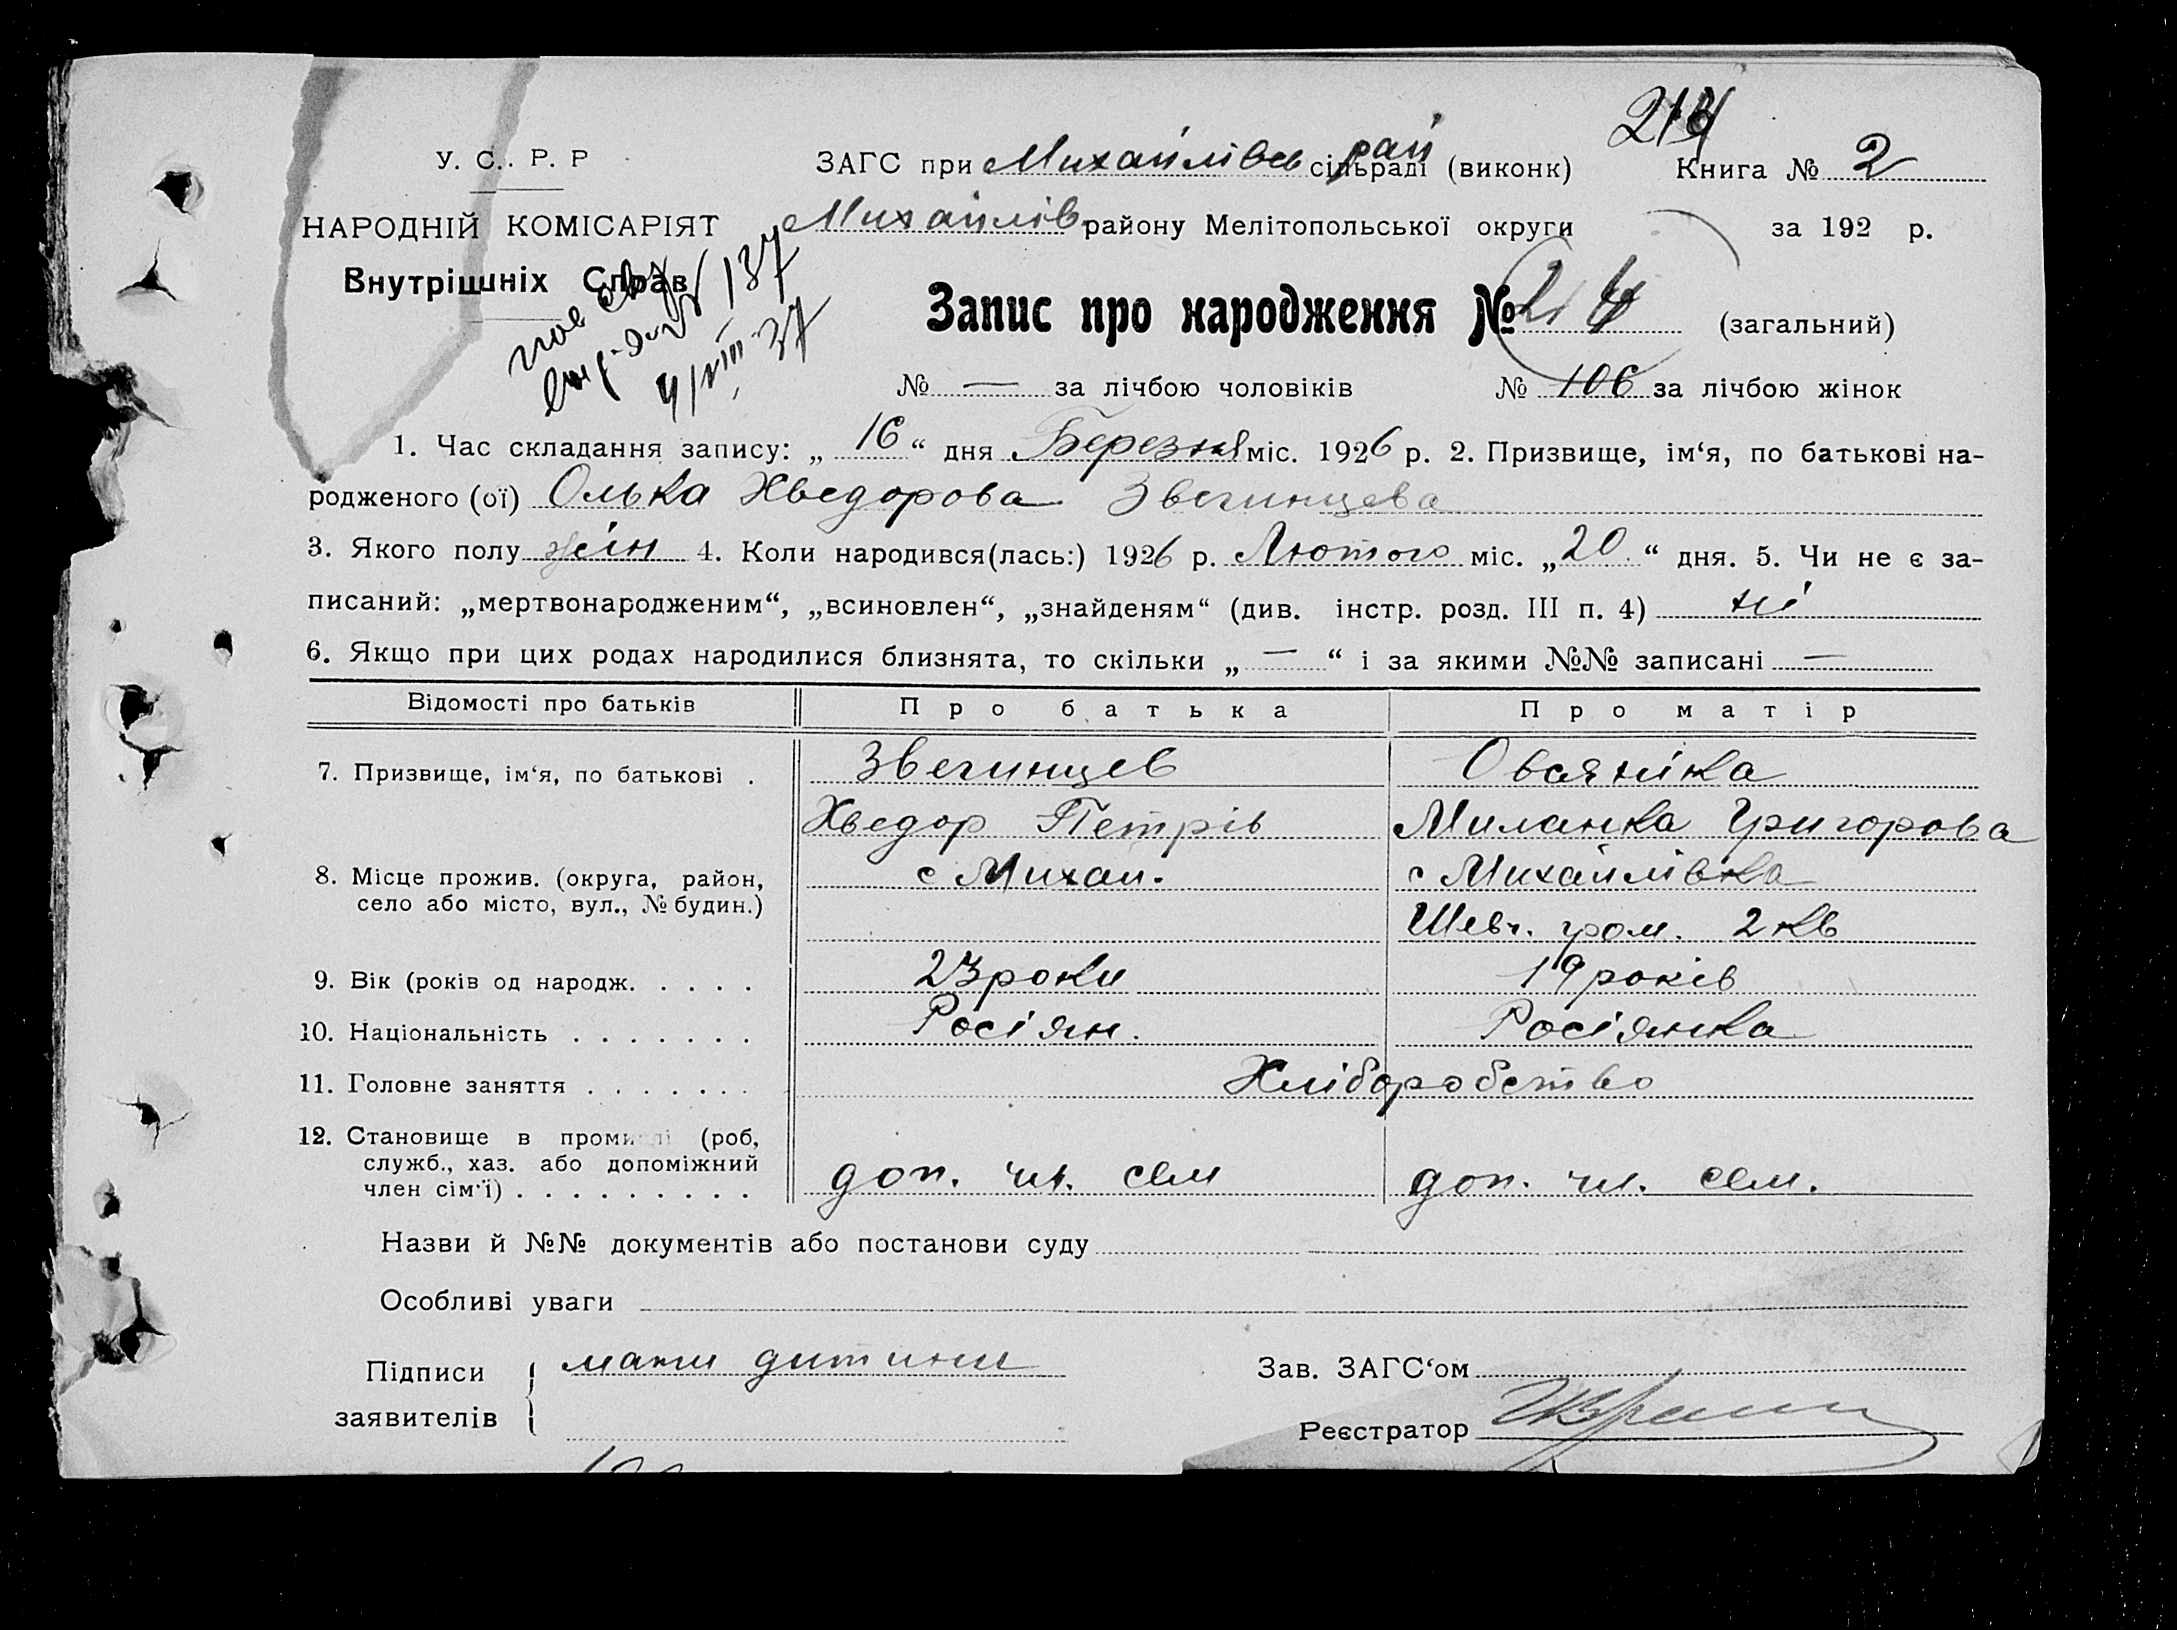 214
У. С. Р. Р
ЗАГС при Михайлівс сільраді рай (виконк)
Книга № 2
НАРОДНІЙ КОМІСАРІЯТ
Михайлів району Мелітопольської округи
за 192 р.
Внутрішніх Справ
137
4/VIII-37
Запис про народження № 214 (загальний)
№ — за лічбою чоловіків № 106 за лічбою жінок
1. Час складання запису: „ 16 “ дня Березня міс. 1926 р. 2. Призвище, ім‘я, по батькові на-
родженого (ої) Олька Хведорова Звегинцева
3. Якого полу жін 4. Коли народився(лась:) 1926 р. Лютого міс. „ 20 “ дня. 5. Чи не є за-
писаний: „мертвонародженим“, „всиновлен“, „знайденям“ (див. інстр. розд. III п. 4) ні
6. Якщо при цих родах народилися близнята, то скільки „ — “ і за якими №№ записані —
Відомості про батьків Про батька Про матір
7. Призвище, ім‘я, по батькові . Звегинцев Овсяніка
Хведор Петрів Миланка Григорова
8. Місце прожив. (округа, район, с Михай. с Михайлівка
село або місто, вул., № будин.) Шевч. гром. 2 кв
9. Вік (років од народж. . . . . 23 роки 19 років
10. Національність . . . . . . . Росіян. Росіянка
11. Головне заняття . . . . . . . Хліборобство
12. Становище в промислі (роб,
служб., хаз. або допоміжний
член сім‘ї) . . . . . . . . . доп. чл. сем доп. чл. сем.
Назви й №№ документів або постанови суду
Особливі уваги
Підписи мати дитини
Зав. ЗАГС‘ом
заявителів
Реєстратор